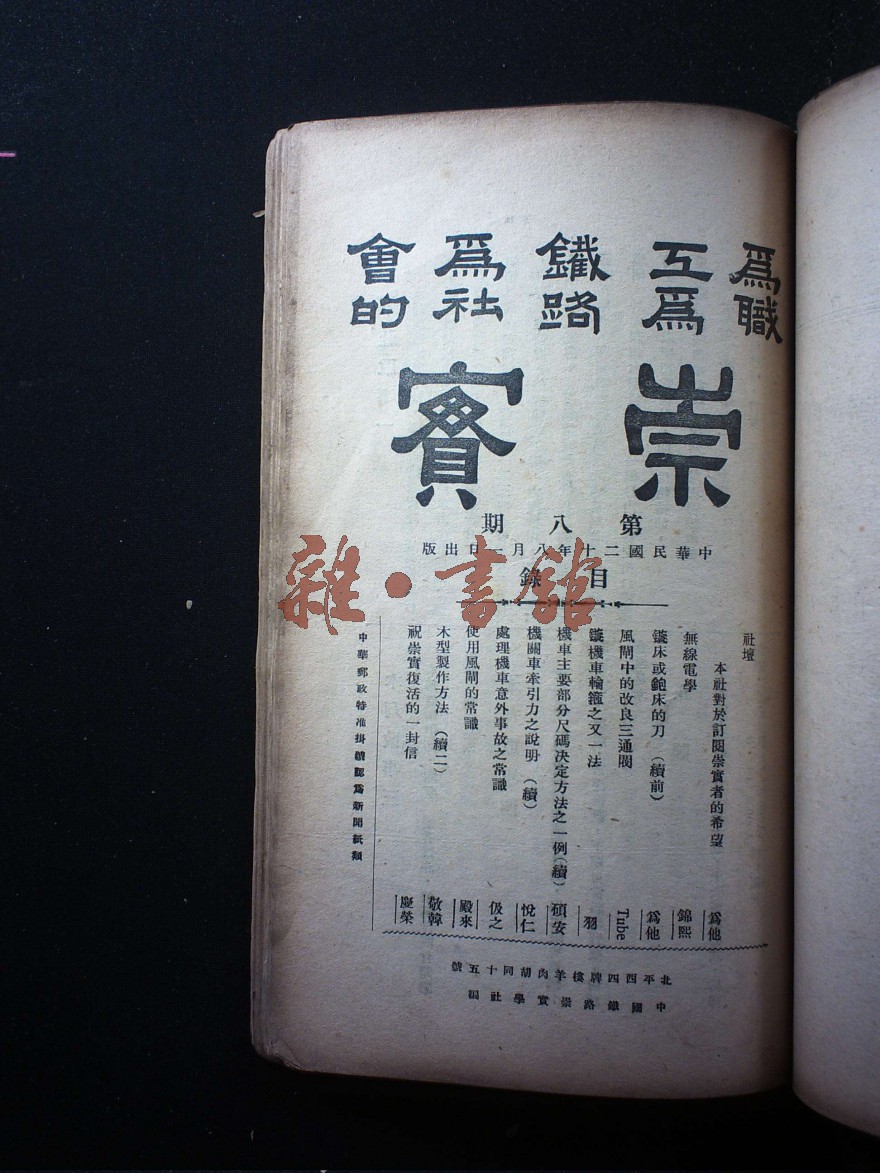 為職工為鐵路為社會的
崇實
第八期
中華民國二十年八月一日出版
目錄
社壇
本社對於訂閱崇實者的希望 為他
無線電學 錦熙
鏇床或鉋床的刀（續前） 為他
風閘中的改良三通閥 Tube
鏇機車輪箍之又一法 羽
機車主要部分尺碼決定方法之一例（續） 碩安
機關車牽引力之說明（續） 悅仁
處理機車意外事故之常識 伋之
使用風閘的常識 殿來
木型製作方法（續二） 敬韓
祝崇實復活的一封信 慶榮
中華郵政特准掛號認爲新聞紙類
北平西四牌樓羊肉胡同十五號
中國鐵路崇實學社編
雜·書館